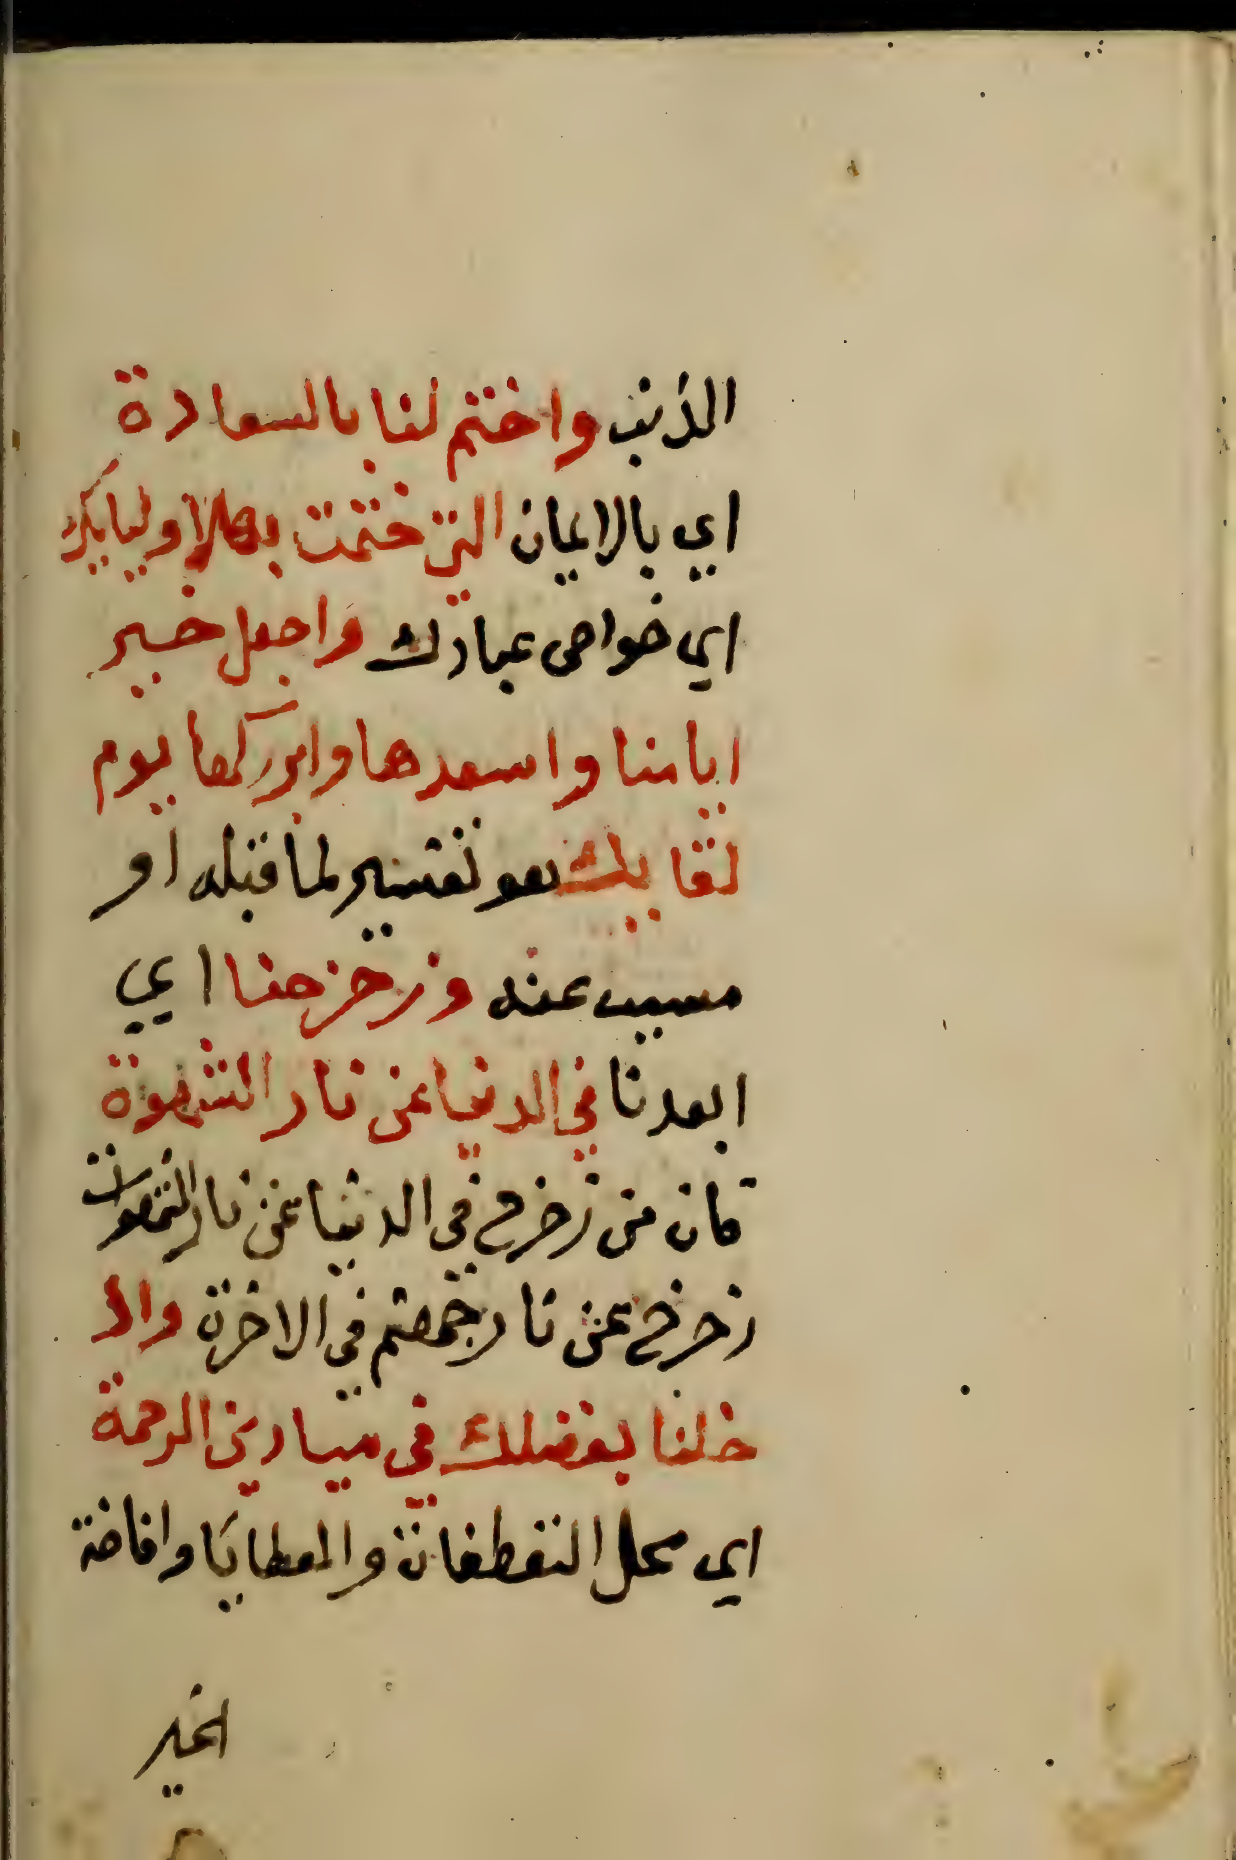 الذنب واختم لنا بالسعادة
اي بالايمان التي ختمت بها لاوليايك
اي خواص عبادك واجعل خير
ايامنا واسعدها وابركها يوم
لقايك هو تفسير لما قبله او
مسبب عنه وزحزحنا اي
ابعدنا في الدنيا عن نار الشهوة
فان من زحزح في الدنيا عن نار الشهوات
زحزح عن نار جهنم في الاخرة واد
خلنا بفضلك في ميادين الرحمة
اي محل التعطفات والعطايا وافاضة
الخير